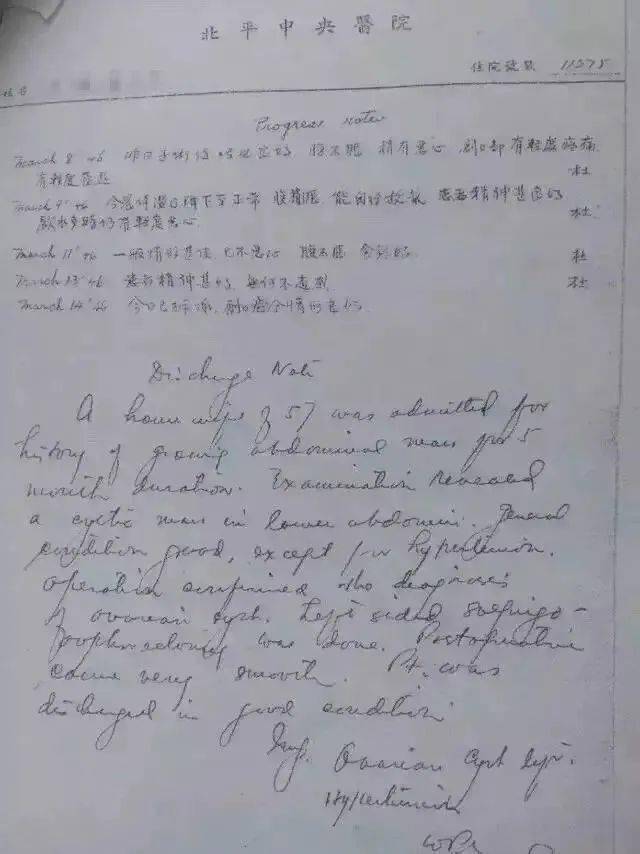 北平中央醫院
住院號數 11575
姓名
Progress Notes
March 8 '46 昨日手術後 腹不脹 稍有惡心 創口部有輕度疼痛
杜
March 9 '46 今晨体溫已降下至正常 腹稍脹 能自 患者精神甚良好
飲水多時仍有輕度惡心 杜
March 11 '46 一般情形甚佳 已不惡心 腹不脹 食 杜
March 13 '46 患者精神甚好 無何不適 杜
March 14 '46 今日已拆線 創口 情形良好
Discharge Note
A housewife of 57 was admitted for
history of growing abdominal mass for 5
month duration. Examination revealed
a cystic mass in lower abdomen. General
condition good, except for hypertension.
operation confirmed the diagnosis
of ovarian cyst. Left sided salpingo-
oophorectomy was done. Postoperative
course very smooth. Pt. was
discharged in good condition
Imp. Ovarian Cyst left.
Hypertension